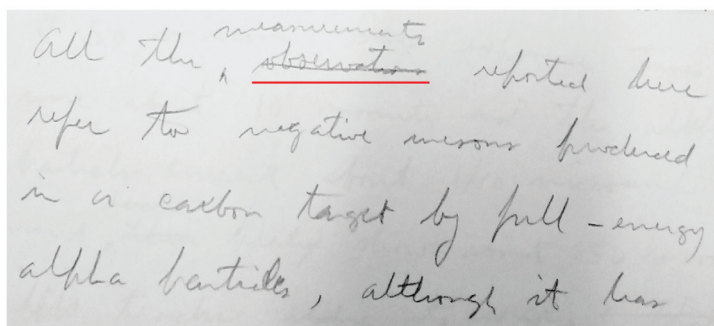 measurements
All the ‸ observations reported here
refer to negative mesons produced
in a carbon target by full-energy
alpha particles, although it has